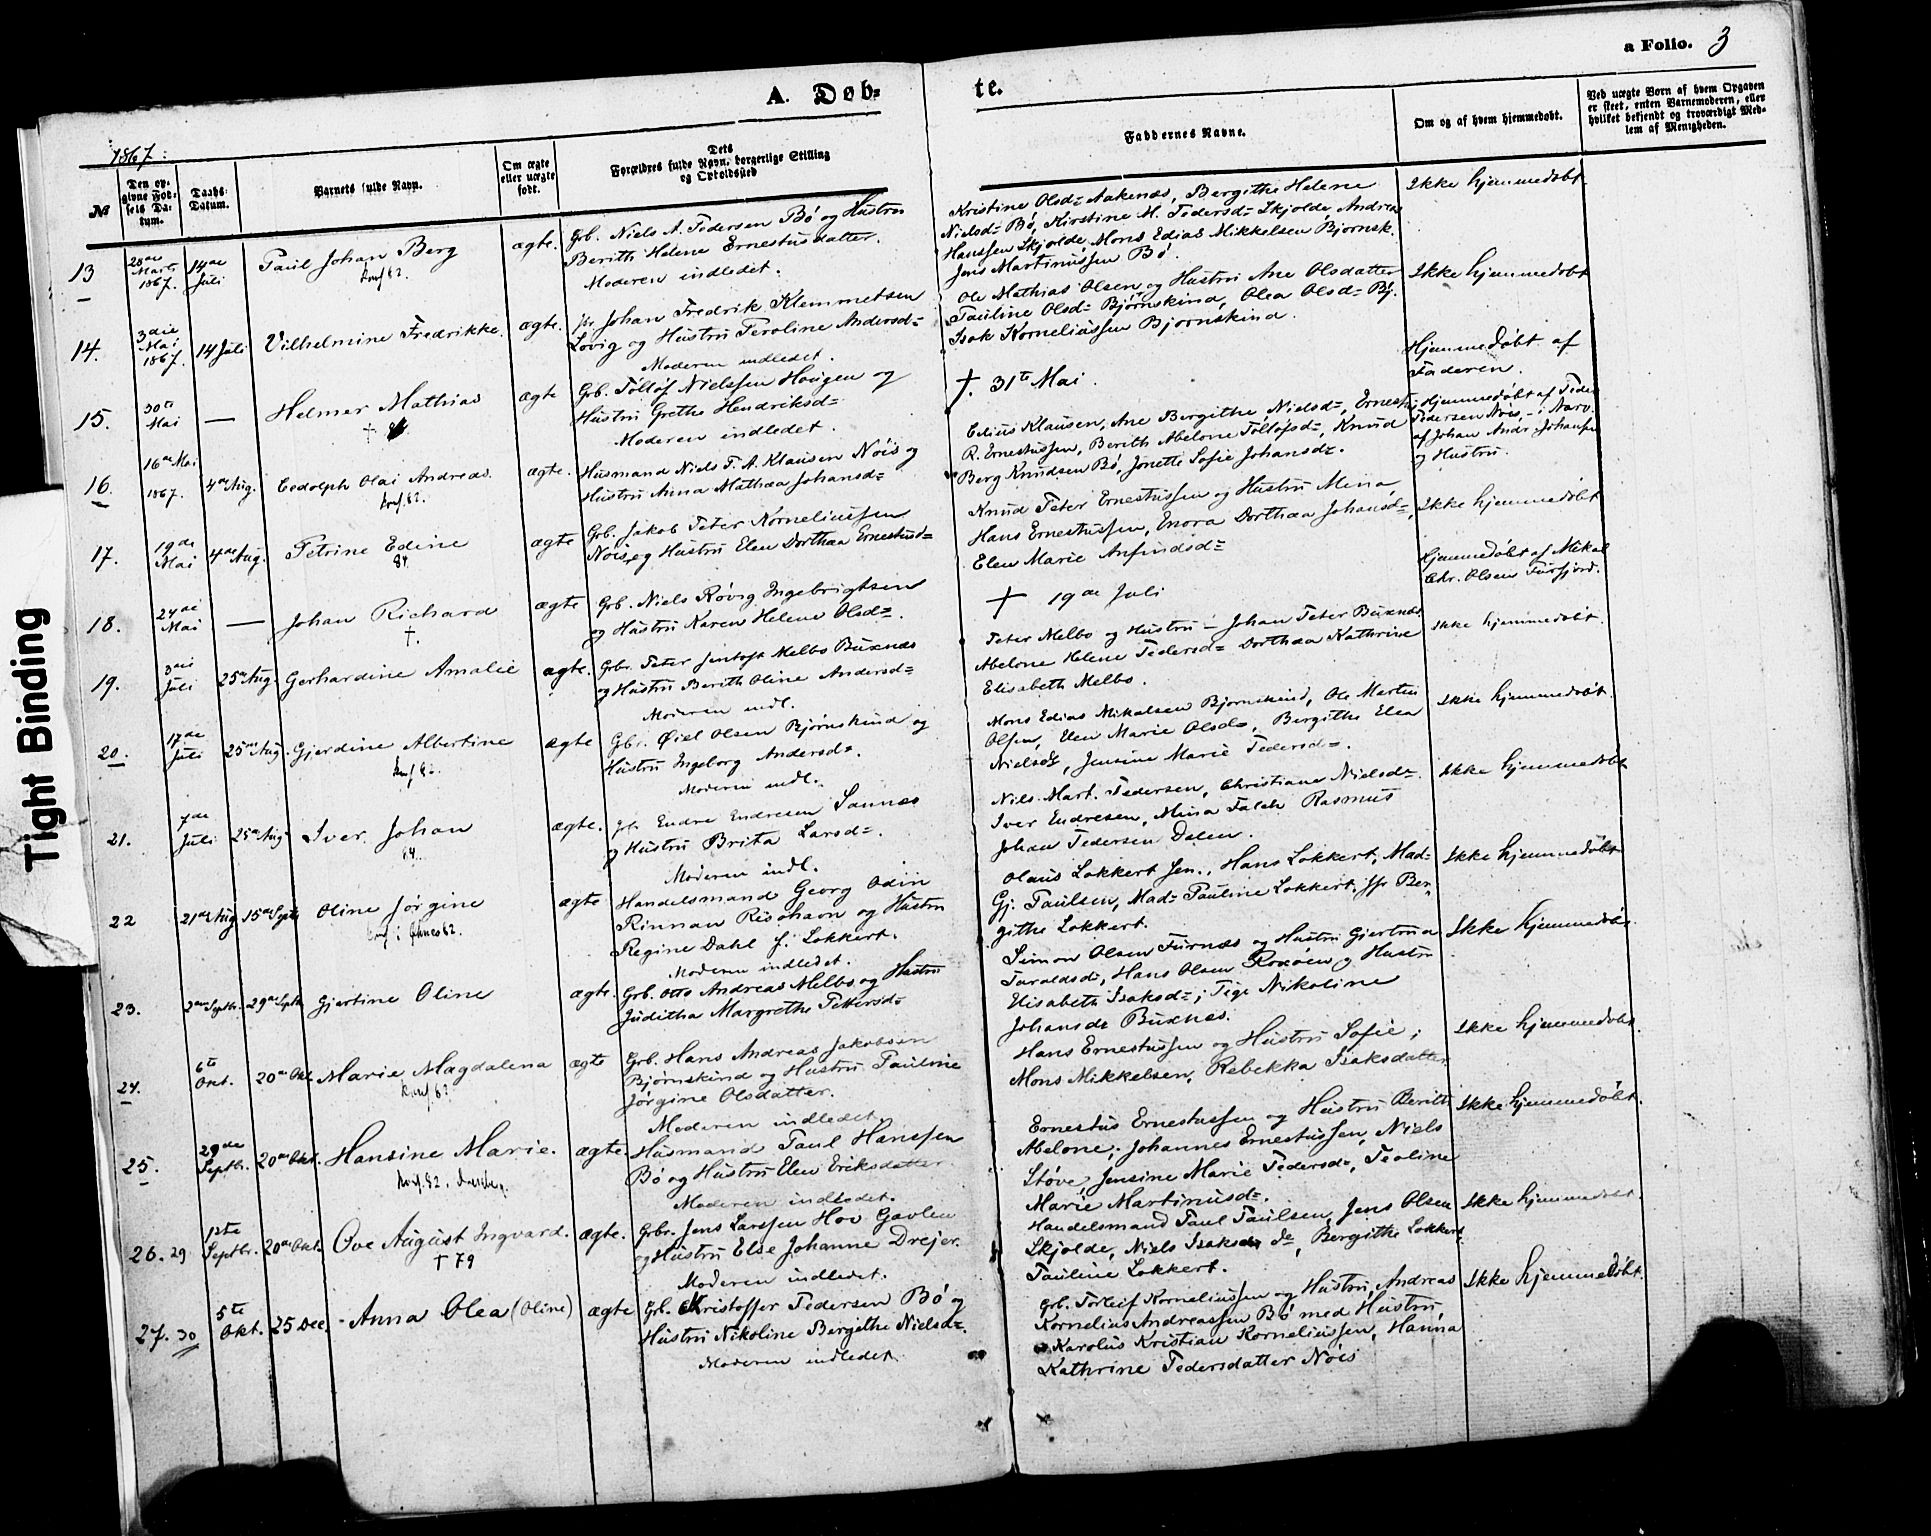 a Folio. 3
A. Døb-
te.
1867:
No
Den op-
givne Fød-
sels Da-
tum.
Daabs-
Datum.
Barnets fulde Navn.
Om ægte
eller uægte
født.
Dets
Forældres fulde Navn, borgerlige Stilling
og Opholdssted
Faddernes Navne.
Om og af hvem hjemmedøbt.
Ved uægte Børn af hvem Opgaven
er skeet, enten Barnemoderen, eller
hvilket bekjendt og troværdigt Med-
lem af Menigheden.
13
28de
Marts
1867.
14de
Juli
Paul Johan Berg
konf. 82.
ægte.
Grb. Niels A. Pedersen Bø og Hustru
Berith Helene Ernestusdatter.
Moderen indledet.
Kristine Olsd= Aakenæs, Bergithe Helene
Nielsd= Bø, Kirstine M. Pedersd= Skjolde, Andreas
Hanssen Skjolde, Mons Edias Mikkelsen Bjørnsk.
Jens Martinussen Bø.
Ikke hjemmedøbt.
14.
3die
Mai
1867.
14 Juli
Vilhelmine Fredrikke.
ægte.
Johan Fredrik Klemmetsen
Lovig og Hustru Peroline Andersd=
Moderen indledet.
Ole Mathias Olsen og Hustru Ane Olsdatter
Pauline Olsd= Bjørnskind, Olea Olsd= Bj.
Isak Korneliussen Bjørnskind.
Ikke hjemmedøbt
15.
30te
Mai
—
Helmer Mathias
†
ægte
Grb. Tolløf Nielssen Hougen og
Hustru Grethe Hendriksd=
Moderen indledet.
†. 31te Mai.
Hjemmedøbt af
Faderen.
16.
16de Mai
1867.
4de Aug.
Eedolph Olai Andreas.
konf. 82.
ægte.
Husmand Niels P. A. Klausen Nøis og
Hustru Anna Mathea Johansd=
Edius Klausen, Ane Bergithe Nielsd=, Ernest
R. Ernestussen, Berith Abelone Tollofsd=, Knud
Berg Knudsen Bø, Jonette Sofie Johansd=.
Hjemmedøbt af Peder
Pedersen Nøis, –
af Johan Andr. Johansen
og Hustru.
17.
19de
Mai
4de Aug.
Petrine Edine
84.
ægte
Grb. Jakob Peter Korneliussen
Nøis, og Hustru Elen Dorthea Ernestusd=
Knud Peter Ernestussen og Hustru Mena,
Hans Ernestussen, Enora Dorthea Johansd=,
Elen Marie Anfindsd=
Ikke hjemmedøbt
18.
24de
Mai
—
Johan Richard
†.
ægte
Grb. Niels Røvig Ingebrigtsen
og Hustru Karen Helene Olsd=.
† 19de Juli
Hjemmedøbt af Mikal
Chr. Olsen Furfjord.
19.
3die
Juli
25de Aug.
Gerhardine Amalie
ægte.
Grbr. Peter Jentoft Melbo Buxnæs
og Hustru Berith Oline Andersd=
Moderen indl.
Peter Melbo og Hustru – Johan Peter Buxnæs
Abelone Helene Pedersd= Dorthea Kathrine
Elisabeth Melbo.
Ikke hjemmedøbt.
20.
17de
Juli
25de Aug.
Gjerdine Albertine
konf. 82.
ægte
Gbr. Øiel Olsen Bjørnskind og
Hustru Ingeborg Andersd=.
Moderen indl.
Mons Edias Mikalsen Bjørnskind, Ole Martin
Olsen, Elen Marie Olsd=, Bergithe Elea
Nielsd=, Jensine Marie Pedersd=.
Ikke hjemmedøbt.
21.
7de
Juli
25de Aug
Iver Johan
84.
ægte.
Endre Endresen Sannæs
og Hustru Brita Larsd=.
Moderen indl.
Nils Mart. Pedersen, Christiane Nielsd=.
Iver Endresen, Mina Falch Rasmus
Johan Pedersen Dalen.
Ikke hjemmedøbt
22
21de Aug
15de Septb
Oline Jørgine
konf. i Øxnes 82.
ægte
Handelsmand Georg Odin
Rinnan Risøhavn og Hustru
Regine Dahl f. Lokkert.
Moderen indledet.
Olaus Lokkert Sen., Hans Lokkert, Mad=
Gj. Paulsen, Mad= Pauline Lokkert, Jfr Ber,
githe Lokkert.
Ikke hjemmedøbt
23.
2den Septbr.
29de Septb
Gjertine Oline
ægte.
Grb. Otto Andreas Melbo og Hustru
Juditha Margrethe Pettersd=
Simon Olsen Furnæs og Hustru Gjertrud
Taraldsd=, Hans Olsen Roxøen og Hustru
Elisabeth Isaksd=; Pige Nikoline
Johansd= Buxnæs.
Ikke hjemmedøbt.
24.
6te
Okt.
20de Okt.
Marie Magdalena
konf. 82
ægte
Grb. Hans Andreas Jakobsen
Bjørnskind og Hustru Pauline
Jørgine Olsdatter.
Moderen indledet.
Hans Ernestussen og Hustru Sofie;
Mons Mikkelsen, Rebekka Isaksdatter
Ikke hjemmedøbt.
25.
29de
Septbr.
20de Okt.
Hansine Marie.
konf. 82.
ægte.
Husmand Paul Hanssen
Bø og Hustru Elen Eriksdatter
Moderen indledet.
Ernestus Ernestussen og Hustru Berith
Abelone; Johannes Ernestussen, Niels
Støve, Jensine Marie Pedersd=, Peoline
Marie Martinusd=.
Ikke hjemmedøbt.
26. 29
12te
Septbr.
20de Okt.
Ove August Ingvard.
† 79
ægte.
Grbr. Jens Larssen Hov Gavlen
og Hustru Else Johanne Drejer.
Moderen indledet.
Handelsmand Paul Paulsen, Jens Olsen
Skjolde, Niels Isaksen do, Bergithe Lokkert
Pauline Lokkert.
Ikke hjemmedøbt.
27. 30
5te
Okt.
25 Dec.
Anna Olea (Oline)
ægte
Grb. Kristoffer Pedersen Bø og
Hustru Nikoline Bergithe Nielsd=.
Moderen indledet.
Grb. Torleif Korneliussen og Hustru, Andreas
Kornelius Andreassen Bø med Hustru,
Karolus Kristian Korneliussen, Hanna
Kathrine Pedersdatter Nøis
Ikke hjemmedøbt.
Tight Binding